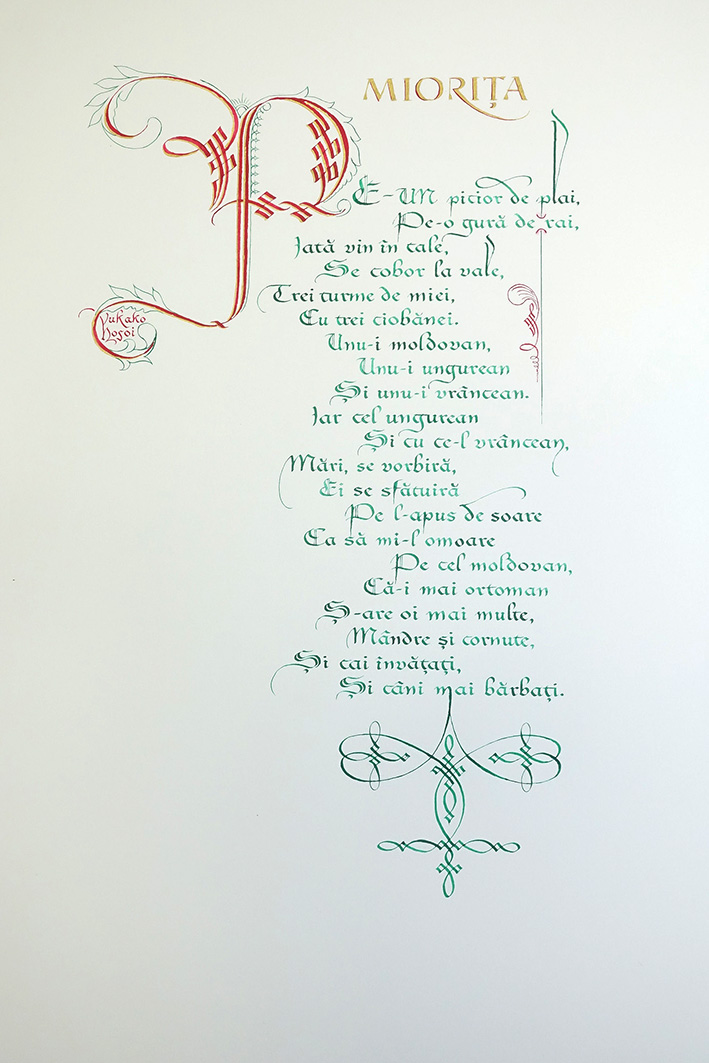 MIORIȚA
PE-UN picior de plai,
Pe-o gură de rai,
Iată vin în cale,
Se cobor la vale,
Trei turme de miei,
Cu trei ciobănei.
Unu-i moldovan,
Unu-i ungurean
Și unu-i vrâncean.
Iar cel ungurean
Și cu ce-l vrâncean,
Mări, se vorbiră,
Ei se sfătuiră
Pe l-apus de soare
Ca să mi-l omoare
Pe cel moldovan,
Că-i mai ortoman
Ș-are oi mai multe,
Mândre și cornute,
Și cai învățați,
Și câni mai bărbați.
Yukako
Hosoi